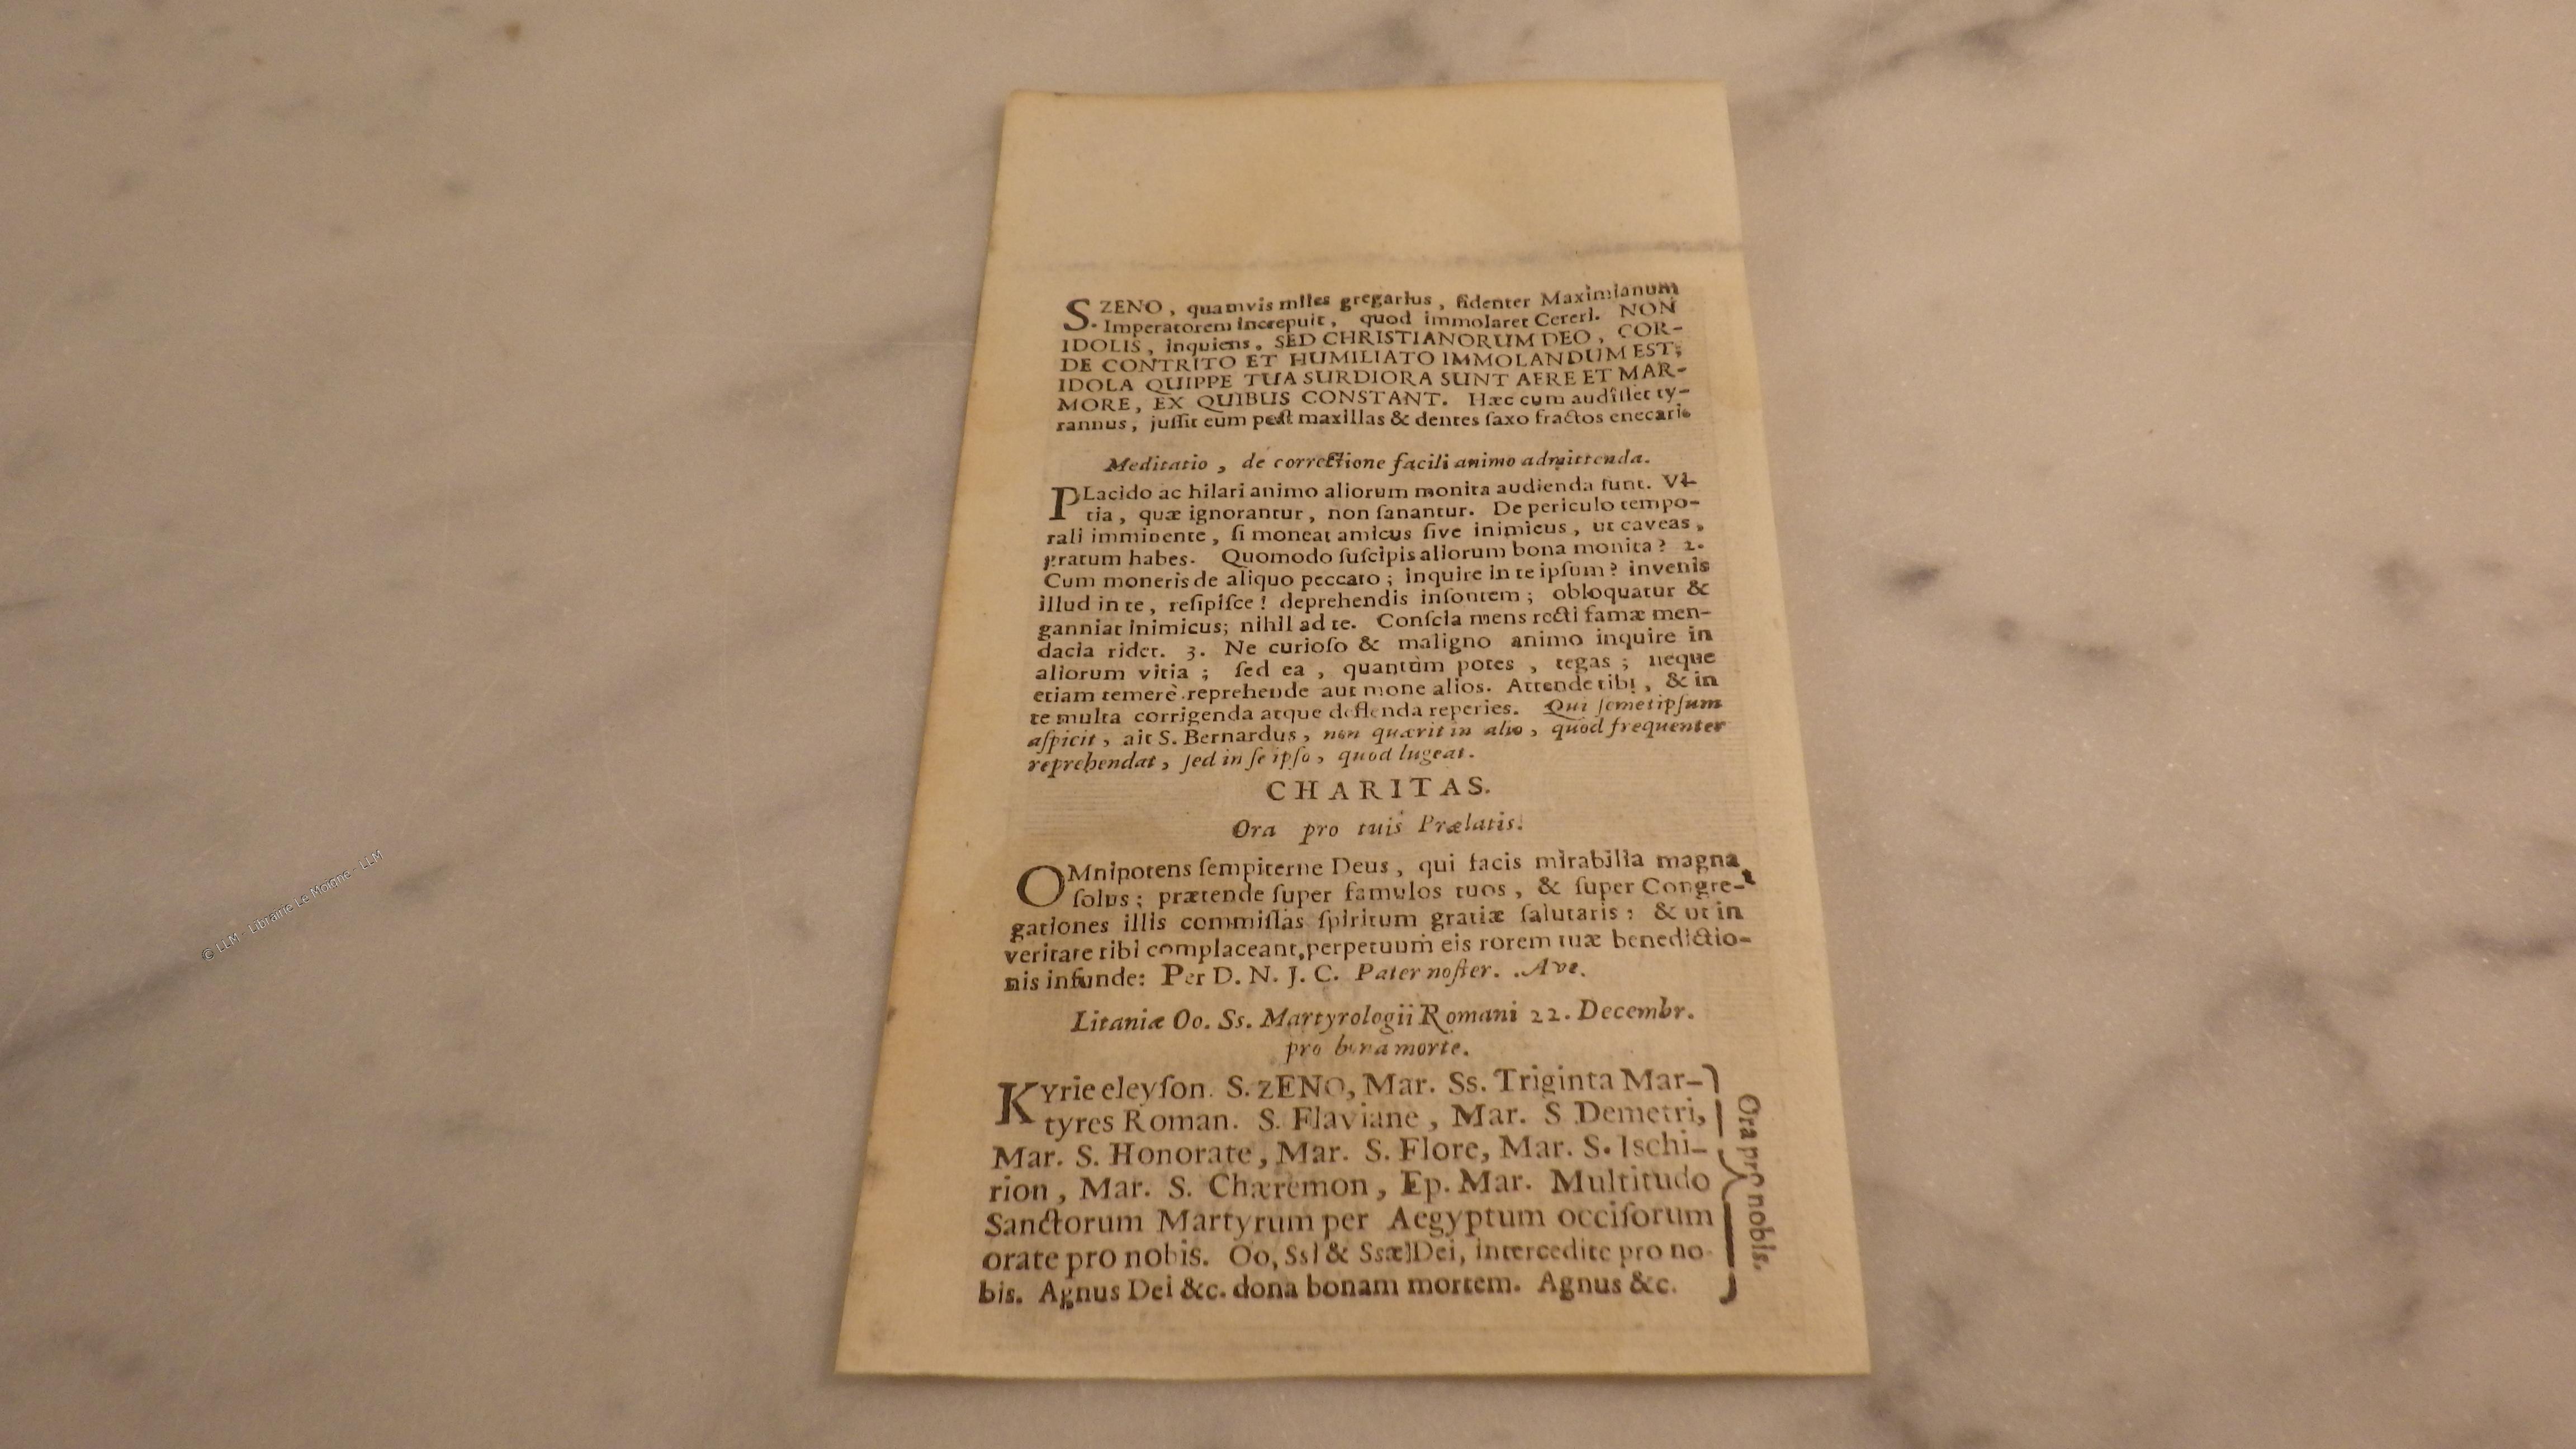 S. ZENO, quamvis miles gregarius, fidenter Maximianum
Imperatorem increpuit, quod immolaret Cereri. NON
IDOLIS, inquiens, SED CHRISTIANORUM DEO, COR-
DE CONTRITO ET HUMILIATO IMMOLANDUM EST;
IDOLA QUIPPE TUA SURDIORA SUNT AERE ET MAR-
MORE, EX QUIBUS CONSTANT. Hæc cum audiſſet ty-
rannus, juſſit eum poſt maxillas & dentes ſaxo fractos enecari.
Meditatio, de correctione facili animo admittenda.
PLacido ac hilari animo aliorum monita audienda ſunt. Vi-
tia, quæ ignorantur, non ſanantur. De periculo tempo-
rali imminente, ſi moneat amicus ſive inimicus, ut caveas,
gratum habes. Quomodo ſuſcipis aliorum bona monita? 2.
Cum moneris de aliquo peccato; inquire in te ipſum? invenis
illud in te, reſipiſce! deprehendis inſontem; obloquatur &
ganniat inimicus; nihil ad te. Conſcia mens recti famæ men-
dacia ridet. 3. Ne curioſo & maligno animo inquire in
aliorum vitia; ſed ea, quantùm potes, tegas; neque
etiam temerè reprehende aut mone alios. Attende tibi, & in
te multa corrigenda atque deflenda reperies. Qui ſemetipſum
aſpicit, ait S. Bernardus, non quærit in alio, quod frequenter
reprehendat, ſed in ſe ipſo, quod lugeat.
CHARITAS.
Ora pro tuis Prælatis.
OMnipotens ſempiterne Deus, qui facis mirabilia magna
ſolus; prætende ſuper famulos tuos, & ſuper Congre-
gationes illis commiſſas ſpiritum gratiæ ſalutaris: & ut in
veritate tibi complaceant, perpetuum eis rorem tuæ benedictio-
nis infunde: Per D. N. J. C. Pater noſter. Ave.
Litaniæ Oo. Ss. Martyrologii Romani 22. Decembr.
pro bona morte.
KYrie eleyſon. S. zENO, Mar. Ss. Triginta Mar-
tyres Roman. S. Flaviane, Mar. S Demetri,
Mar. S. Honorate, Mar. S. Flore, Mar. S. Ischi-
rion, Mar. S. Chæremon, Ep. Mar. Multitudo
Sanctorum Martyrum per Aegyptum occiſorum
orate pro nobis. Oo, Ss] & Ssæ] Dei, intercedite pro no-
bis. Agnus Dei &c. dona bonam mortem. Agnus &c.
Ora pro nobis.
© LLM - Librairie Le Moigne - LLM